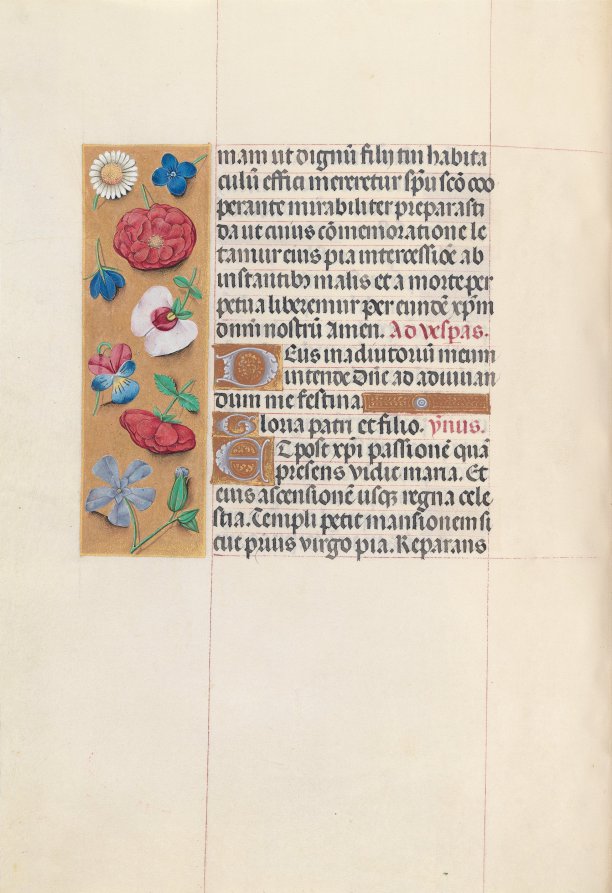 mam ut dignũ filij tui habita
culũ effici mereretur sp̃u scõ coo
perante mirabiliter preparasti
da ut cuius cõmemoratione le
tamur eius pia intercessiõe ab
instantibꝫ malis et a morte per
petua liberemur per eundẽ xp̃m
dnm̃ nostrũ Amen. Ad vespas.
Deus in adiutoriũ meum
intende Dñe ad adiuuan
dum me festina
Gloria patri et filio. ym̃us.
Et post xp̃i passionẽ quã
presens vidit maria. Et
eius ascensionẽ usqꝫ regna cele
stia. Templi petit mansionem si
cut prius virgo pia. Reparans